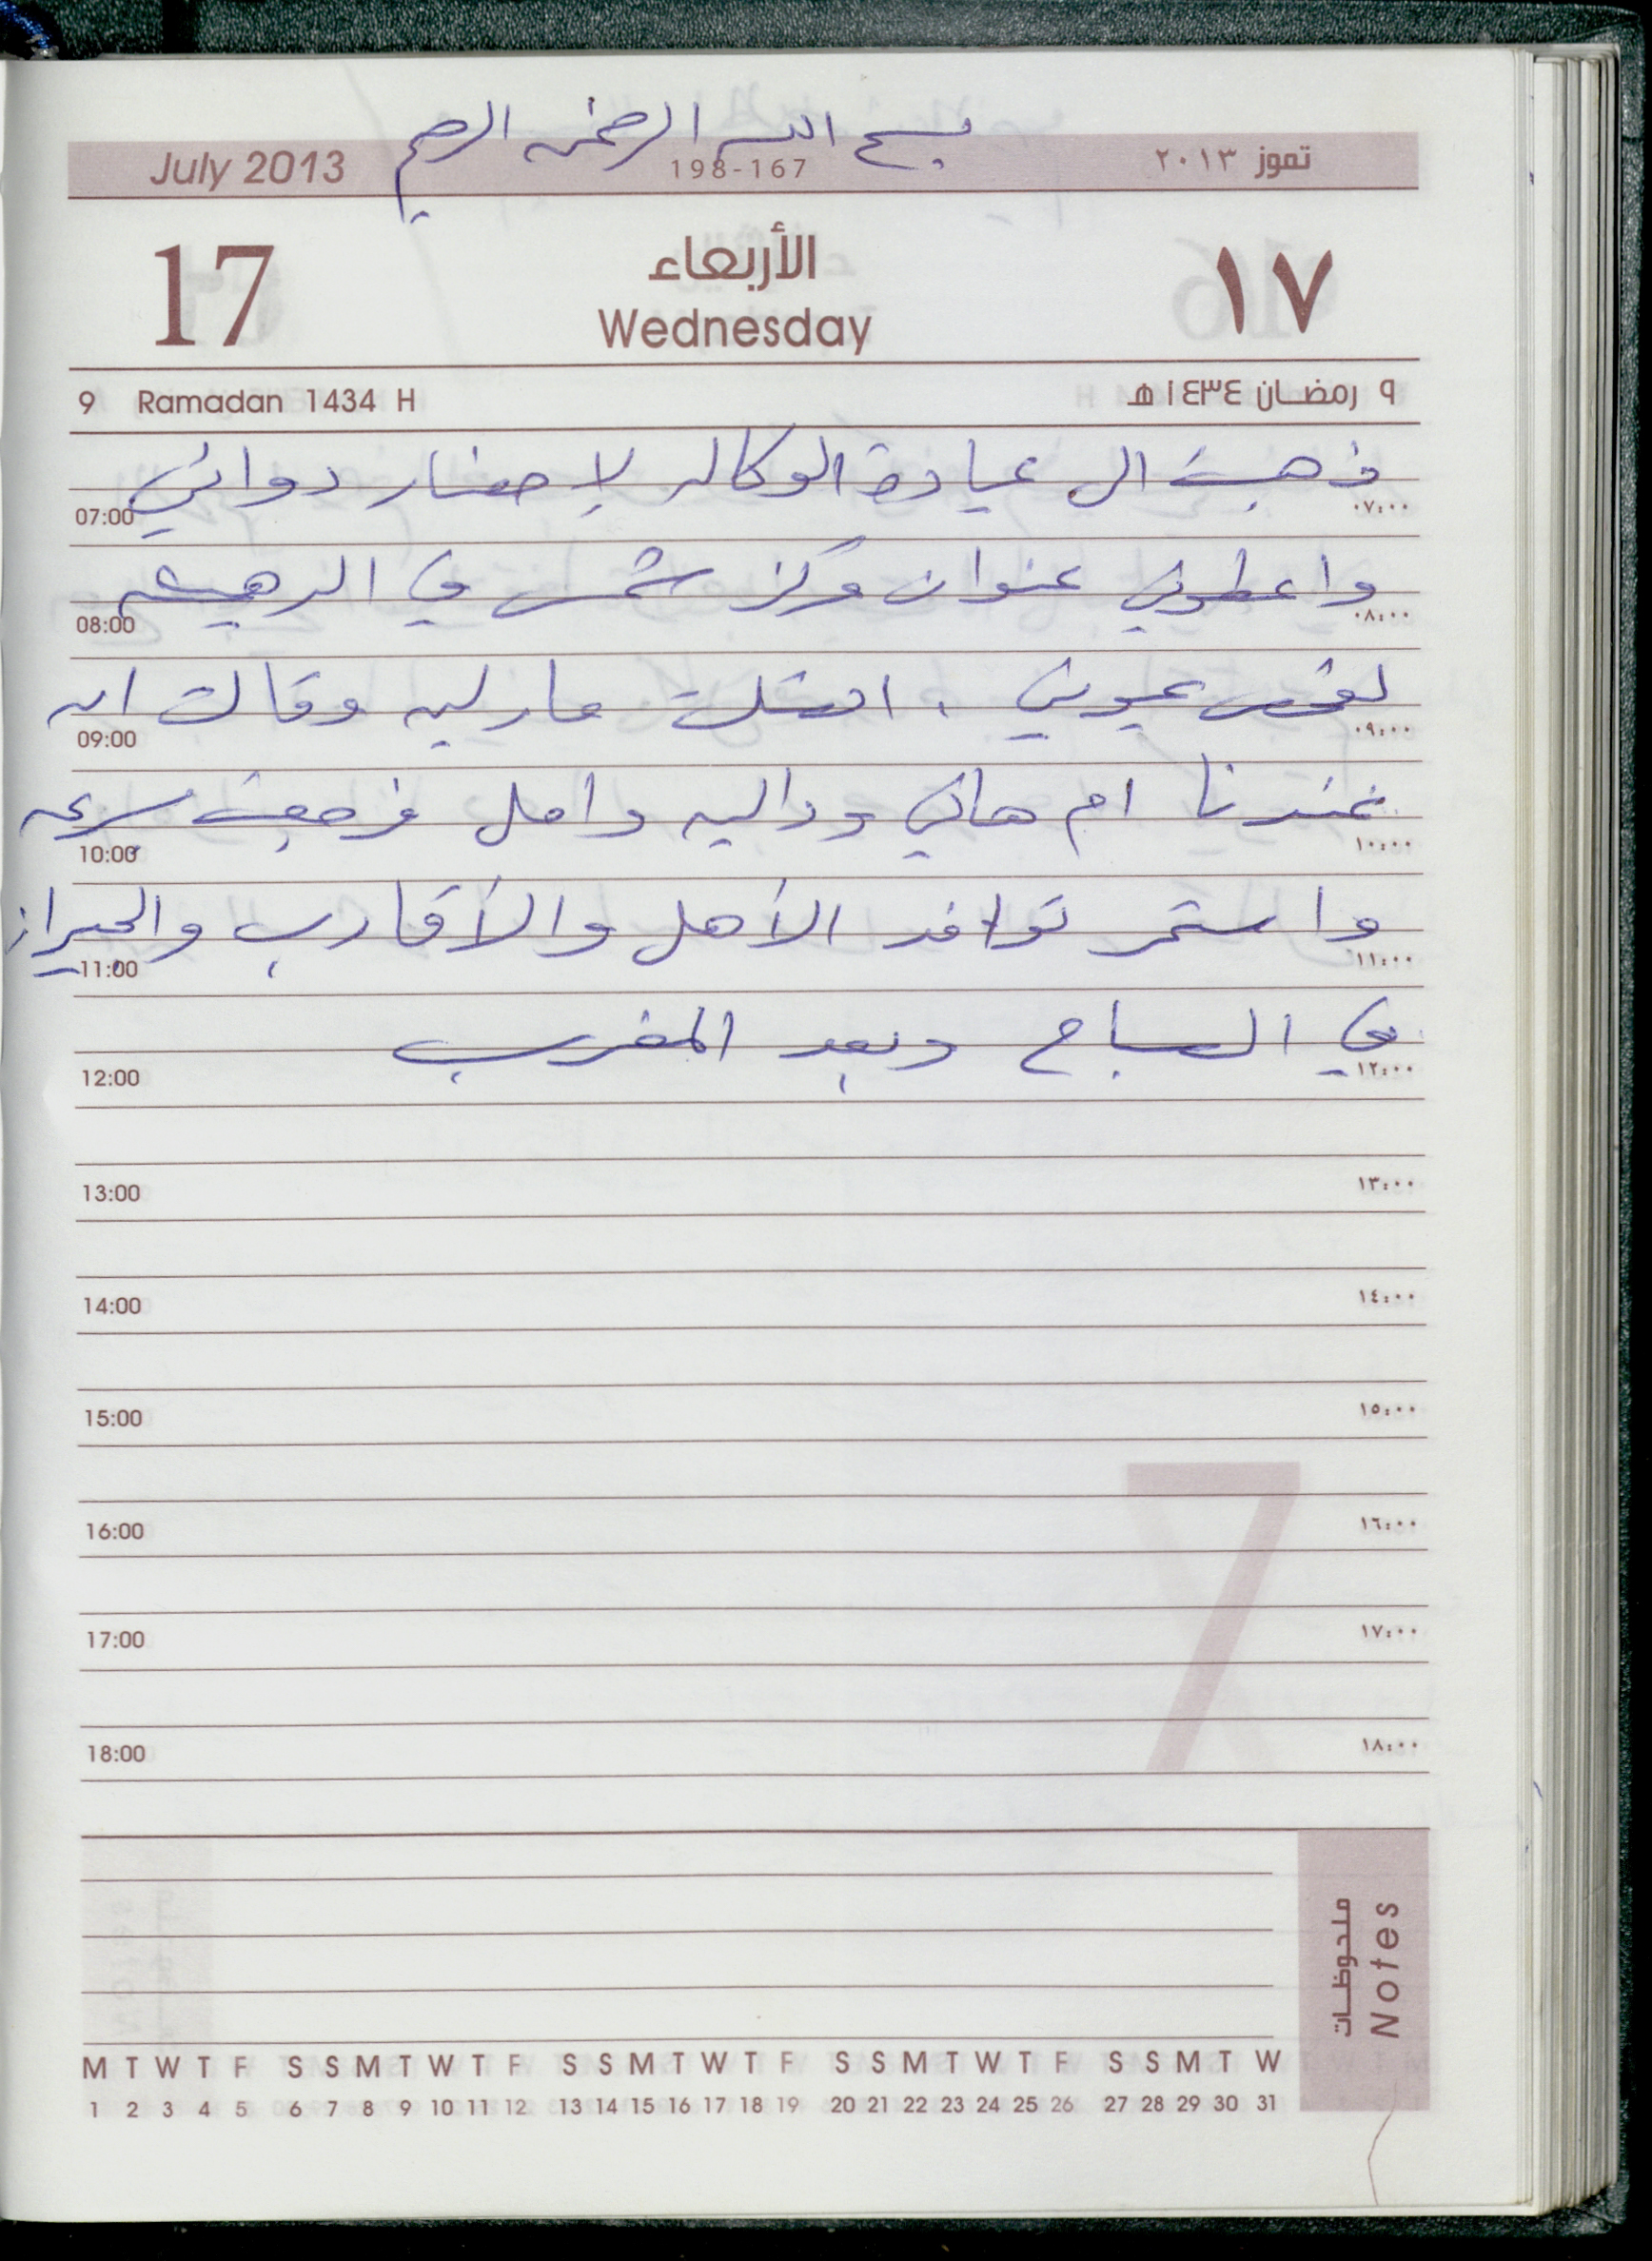 بسم الله الرحمن الرحيم
July 2013 198-167 تموز ٢٠١٣
17 الأربعاء ١٧
Wednesday
9 Ramadan 1434 H ٩ رمضان ١٤٣٤ هـ
ذهبت الى عيادة الوكاله لإحضار دوائي
07:00 ٠٧:٠٠
واعطوني عنوان مركز شمس في الدهيشه
08:00 ٠٨:٠٠
لفحص عيوني . اتصلت مارليه وقالت ان
09:00 ٠٩:٠٠
عندنا ام هاني وداليه وامل فرجعت بسرعه
10:00 ١٠:٠٠
واستمر توافد الأهل والأقارب والجيران
11:00 ١١:٠٠
في الصباح وبعد المغرب
12:00 ١٢:٠٠
13:00 ١٣:٠٠
14:00 ١٤:٠٠
15:00 ١٥:٠٠
16:00 ١٦:٠٠
17:00 ١٧:٠٠
18:00 ١٨:٠٠
7
ملحوظات
Notes
M T W T F S S M T W T F S S M T W T F S S M T W T F S S M T W
1 2 3 4 5 6 7 8 9 10 11 12 13 14 15 16 17 18 19 20 21 22 23 24 25 26 27 28 29 30 31